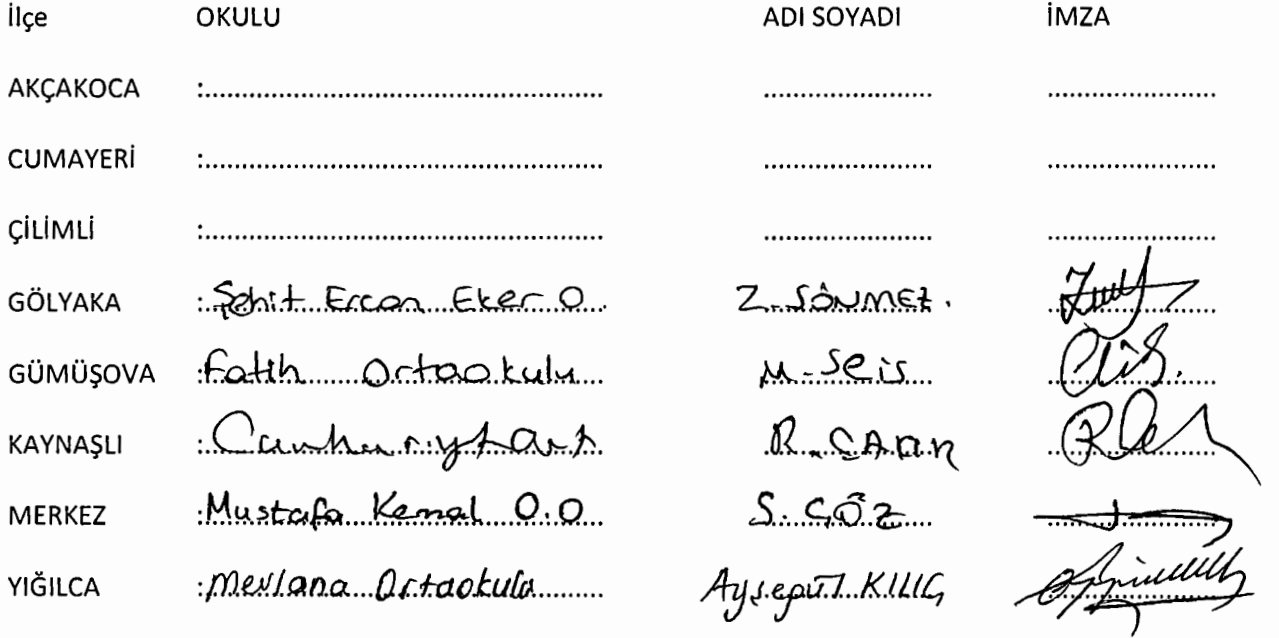 İlçe OKULU ADI SOYADI İMZA
AKÇAKOCA :.................................................... ...................... ......................
CUMAYERİ :.................................................... ...................... ......................
ÇİLİMLİ :.................................................... ...................... ......................
GÖLYAKA : Şehit Ercan Eker O. Z. SÖNMEZ.
GÜMÜŞOVA : Fatih Ortaokulu M. Seis
KAYNAŞLI : Cumhuriyet Ort R.
MERKEZ : Mustafa Kemal O.O S. GÖZ
YIĞILCA : Mevlana Ortaokulu Ayşegül KILIÇ